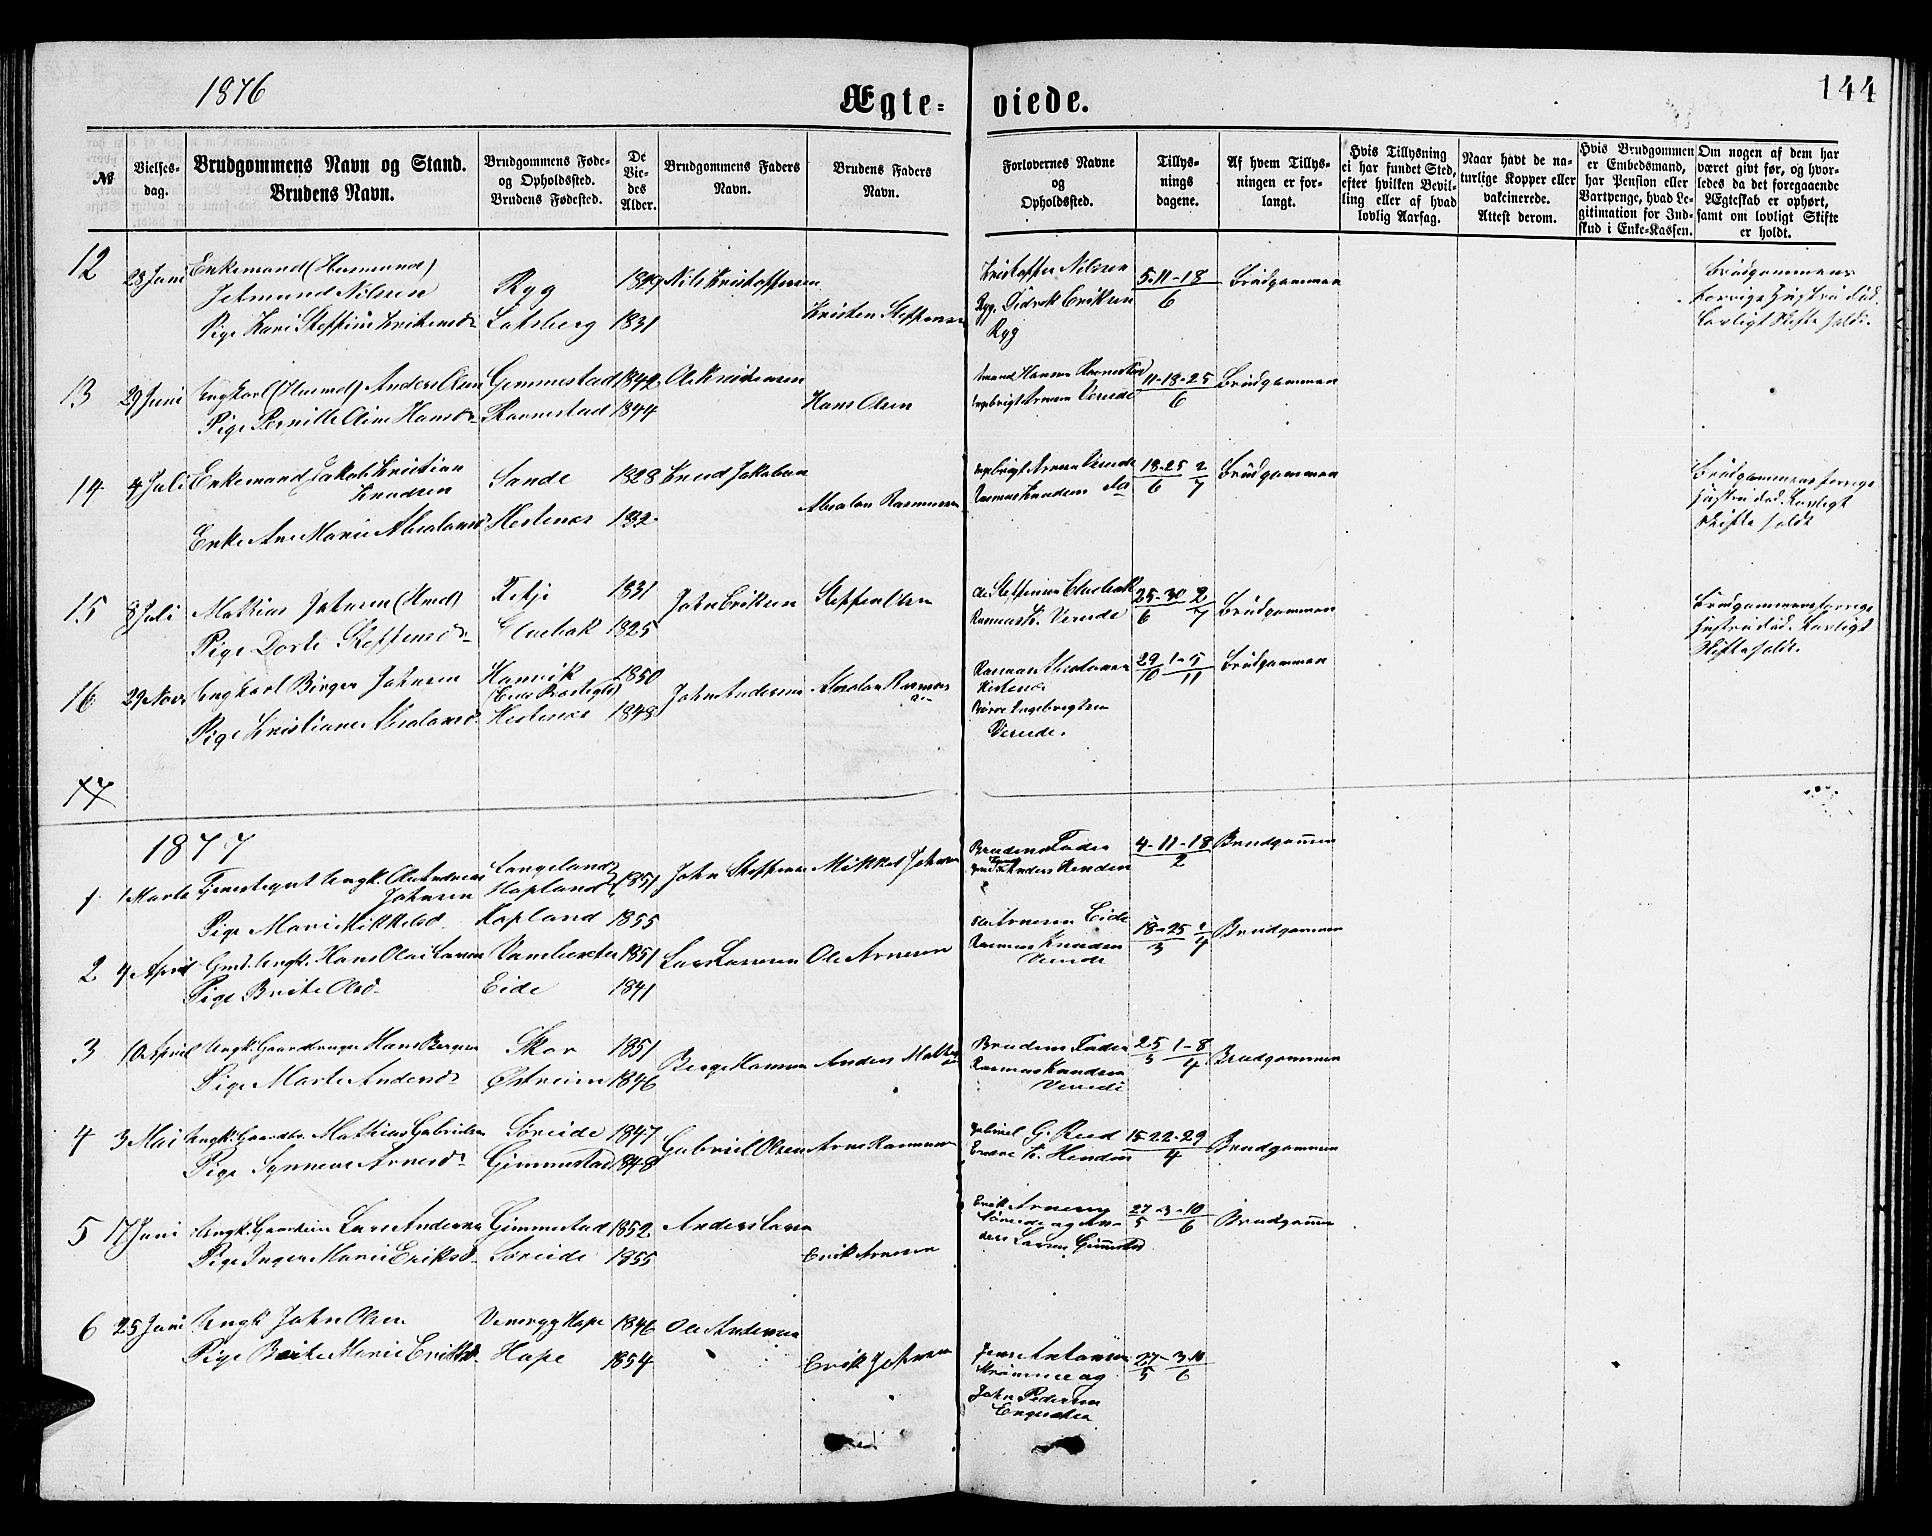 1876
Ægte-
viede.
144
№
Vielses-
dag.
Brudgommens Navn og Stand.
Brudens Navn.
Brudgommens Føde-
og Opholdssted.
Brudens Fødested.
De
Vie-
des
Alder.
Brudgommens Faders
Navn.
Brudens Faders
Navn.
Forlovernes Navne
og
Opholdssted.
Tillys-
nings
dagene.
Af hvem Tillys-
ningen er for-
langt.
Hvis Tillysning
ei har fundet Sted,
efter hvilken Bevil-
ling eller af hvad
lovlig Aarsag.
Naar havt de na-
turlige Kopper eller
vakcinerede.
Attest derom.
Hvis Brudgommen
er Embedsmand,
har Pension eller
Vartpenge, hvad Le-
gitimation for Ind-
skud i Enke-Kassen.
Om nogen af dem har
været givt før, og hvor-
ledes da det foregaaende
Ægteskab er ophørt,
samt om lovligt Skifte
er holdt.
12
28 Juni
Enkemand (Husmand)
Jetmund Nilsen
Pige Kari Steffine Kristensd
Ryg
Lotsberg
1831
Nils Kristoffersen
Kristen Steffensen
Kristoffer Nilssen
Ryg. Didrik Eriksen
Ryg
5-11-18
6
Brudgommen
Brudgommens
forrige Hustru död.
Lovligt Skifte holdt.
13
29 Juni
Ungkarl (Husmd) Anders Olsen
Pige Pernille Oline Hansd
Gemmestad
Ravnestad
1842
1844
Ole Kristensen
Hans Olsen
Hansen Ravnestad
Ingebrigt Arnesen Vereide
11-18-25
6
Brudgommen
14
4 Juli
Enkemand Jakob Kristian
Knudsen
Enke Ane Marie Absalonsd
Sande
Hestenes
1828
1832
Knud Jakobsen
Absalon Rasmussen
Ingebrigt Arnesen Vereide
Rasmus Knudsen do
18-25 2
6 7
Brudgommen
Brudgommens forrige
Hustru död. Lovligt
Skifte holdt
15
8 Juli
Mathias Johnsen (Hmd)
Pige Dorte Steffensd
Tetje
1831
1825
John Eriksen
Steffen Olsen
Rasmus K. Vereide
25-30 2
6 7
Brudgommen
Brudgommens forrige
Hustru död. Lovligt
Skifte holdt.
16
29 Novr
Ungkarl Birger Johnsen
Pige Kristiane Absalonsd
Hamvik
Hestenes
1850
1848
John Andersen
Absalon Rasmus
sen
Rasmus Absalonsen
Hestenes
Ingebregtsen
Vereide.
29 1-5
10 11
Brudgommen
17
1877
1
1 Marts
Ungk. Ole Andreas
Johnsen
Pige Mari Mikkelsd.
Langeland
Hapland
Hapland
1851
1855
John Steffensen
Mikkel Johnsen
Brudens Fader
Anders Henden
4-11-18
2
Brudgommen
2
4 April
Gmd. Ungk. Hans Olai Larsen
Pige Brite Olsd
Eide
1851
1841
Lars Larsen
Ole Arnesen
Ole Arnesen Eide
Rasmus Knudsen
Vereide
18-25 2
3 4
Brudgommen
3
10 April
Ungk. Gaardbruger Hans Bergesen
Pige Marte Andersd
Skor
Østreim
1851
1846
Berge Hansen
Anders
Brudens Fader
Rasmus Knudsen
Vereide
25 1-8
3 4
Brudgommen
4
3 Mai
Ungk. Gaardbr. Mathias Gabrielsen
Pige Synneve Arnesd
Søreide
Gimmestad
1847
1848
Gabriel Olsen
Arne Rasmussen
Gabriel G. Reed
K. Henden
15-22-29
4
Brudgommen
5
17 Juni
Ungk. Lars Andersen
Pige Inger Marie Eriksd
Gimmestad
Søreide
1852
1855
Anders Larsen
Erik Arnesen
Erik Arnesen
Søreide og An-
ders Larsen Gimmestad
27 3-10
5 6
Brudgommen
6
25 Juni
Ungk John Olsen
Pige Brite Marie Eriksd
Hope
1846
1854
Ole Andersen
Erik Johnsen
Jens Antonsen
Strømme og
John Pedersen
27 3-10
5 6